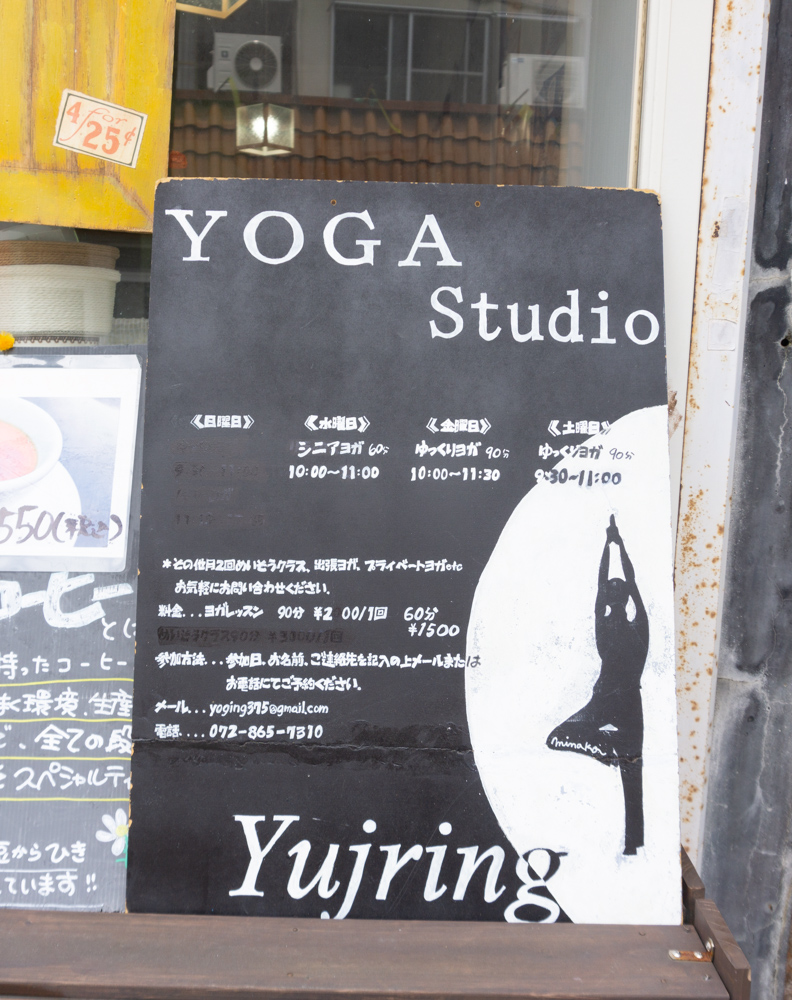 4 for 25¢
YOGA
Studio
《日曜日》 《水曜日》 《金曜日》 《土曜日》
シニアヨガ 60分 ゆっくりヨガ 90分 ゆっくりヨガ 90分
10:00〜11:00 10:00〜11:30 9:30〜11:00
*その他月2回めいそうクラス、出張ヨガ、プライベートヨガetc
お気軽にお問い合わせください。
料金...ヨガレッスン 90分 ¥2 00/1回 60分
¥1500
めいそうクラス90分 ¥3300/1回
参加方法...参加日、お名前、ご連絡先を記入の上メールまたは
お電話にてご予約ください。
メール...yoging375@gmail.com
電話....072-865-7310
minakoi
Yujring
550(税込)
コーヒー
とは
持ったコーヒー
く環境、生産
、全ての段
スペシャルティ
豆からひき
ています!!